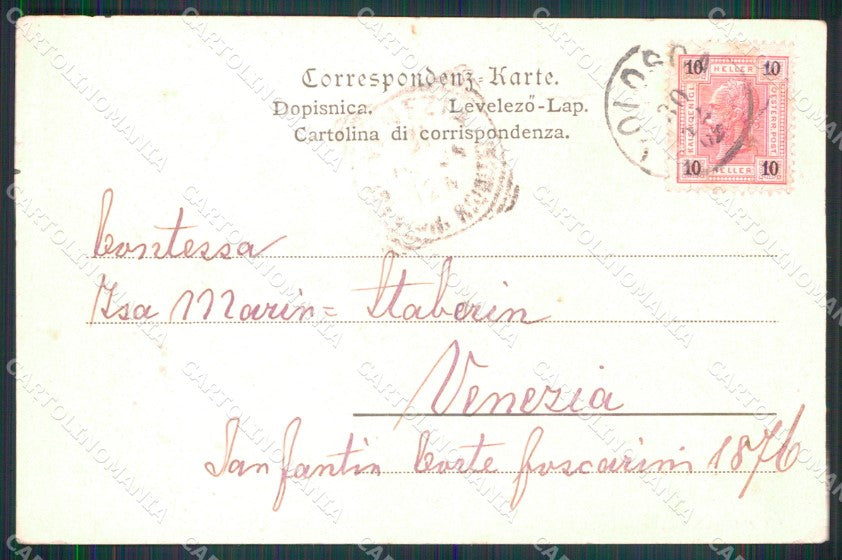 Correspondenz-Karte.
Dopisnica. Levelező-Lap.
Cartolina di corrispondenza.
10 HELLER 10
KAISERKOENIGL. OESTERR. POST
10 HELLER 10
Contessa
Isa Marin= Staberin
Venezia
San Fantin Corte foscarini 1876
CARTOLINOMANIA